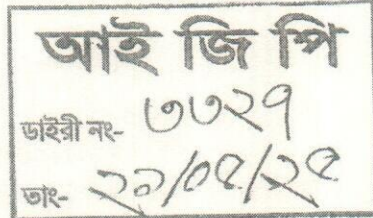 আই জি পি
ডাইরী নং- ৩৩২৭
তাং- ২১/০৫/২৫